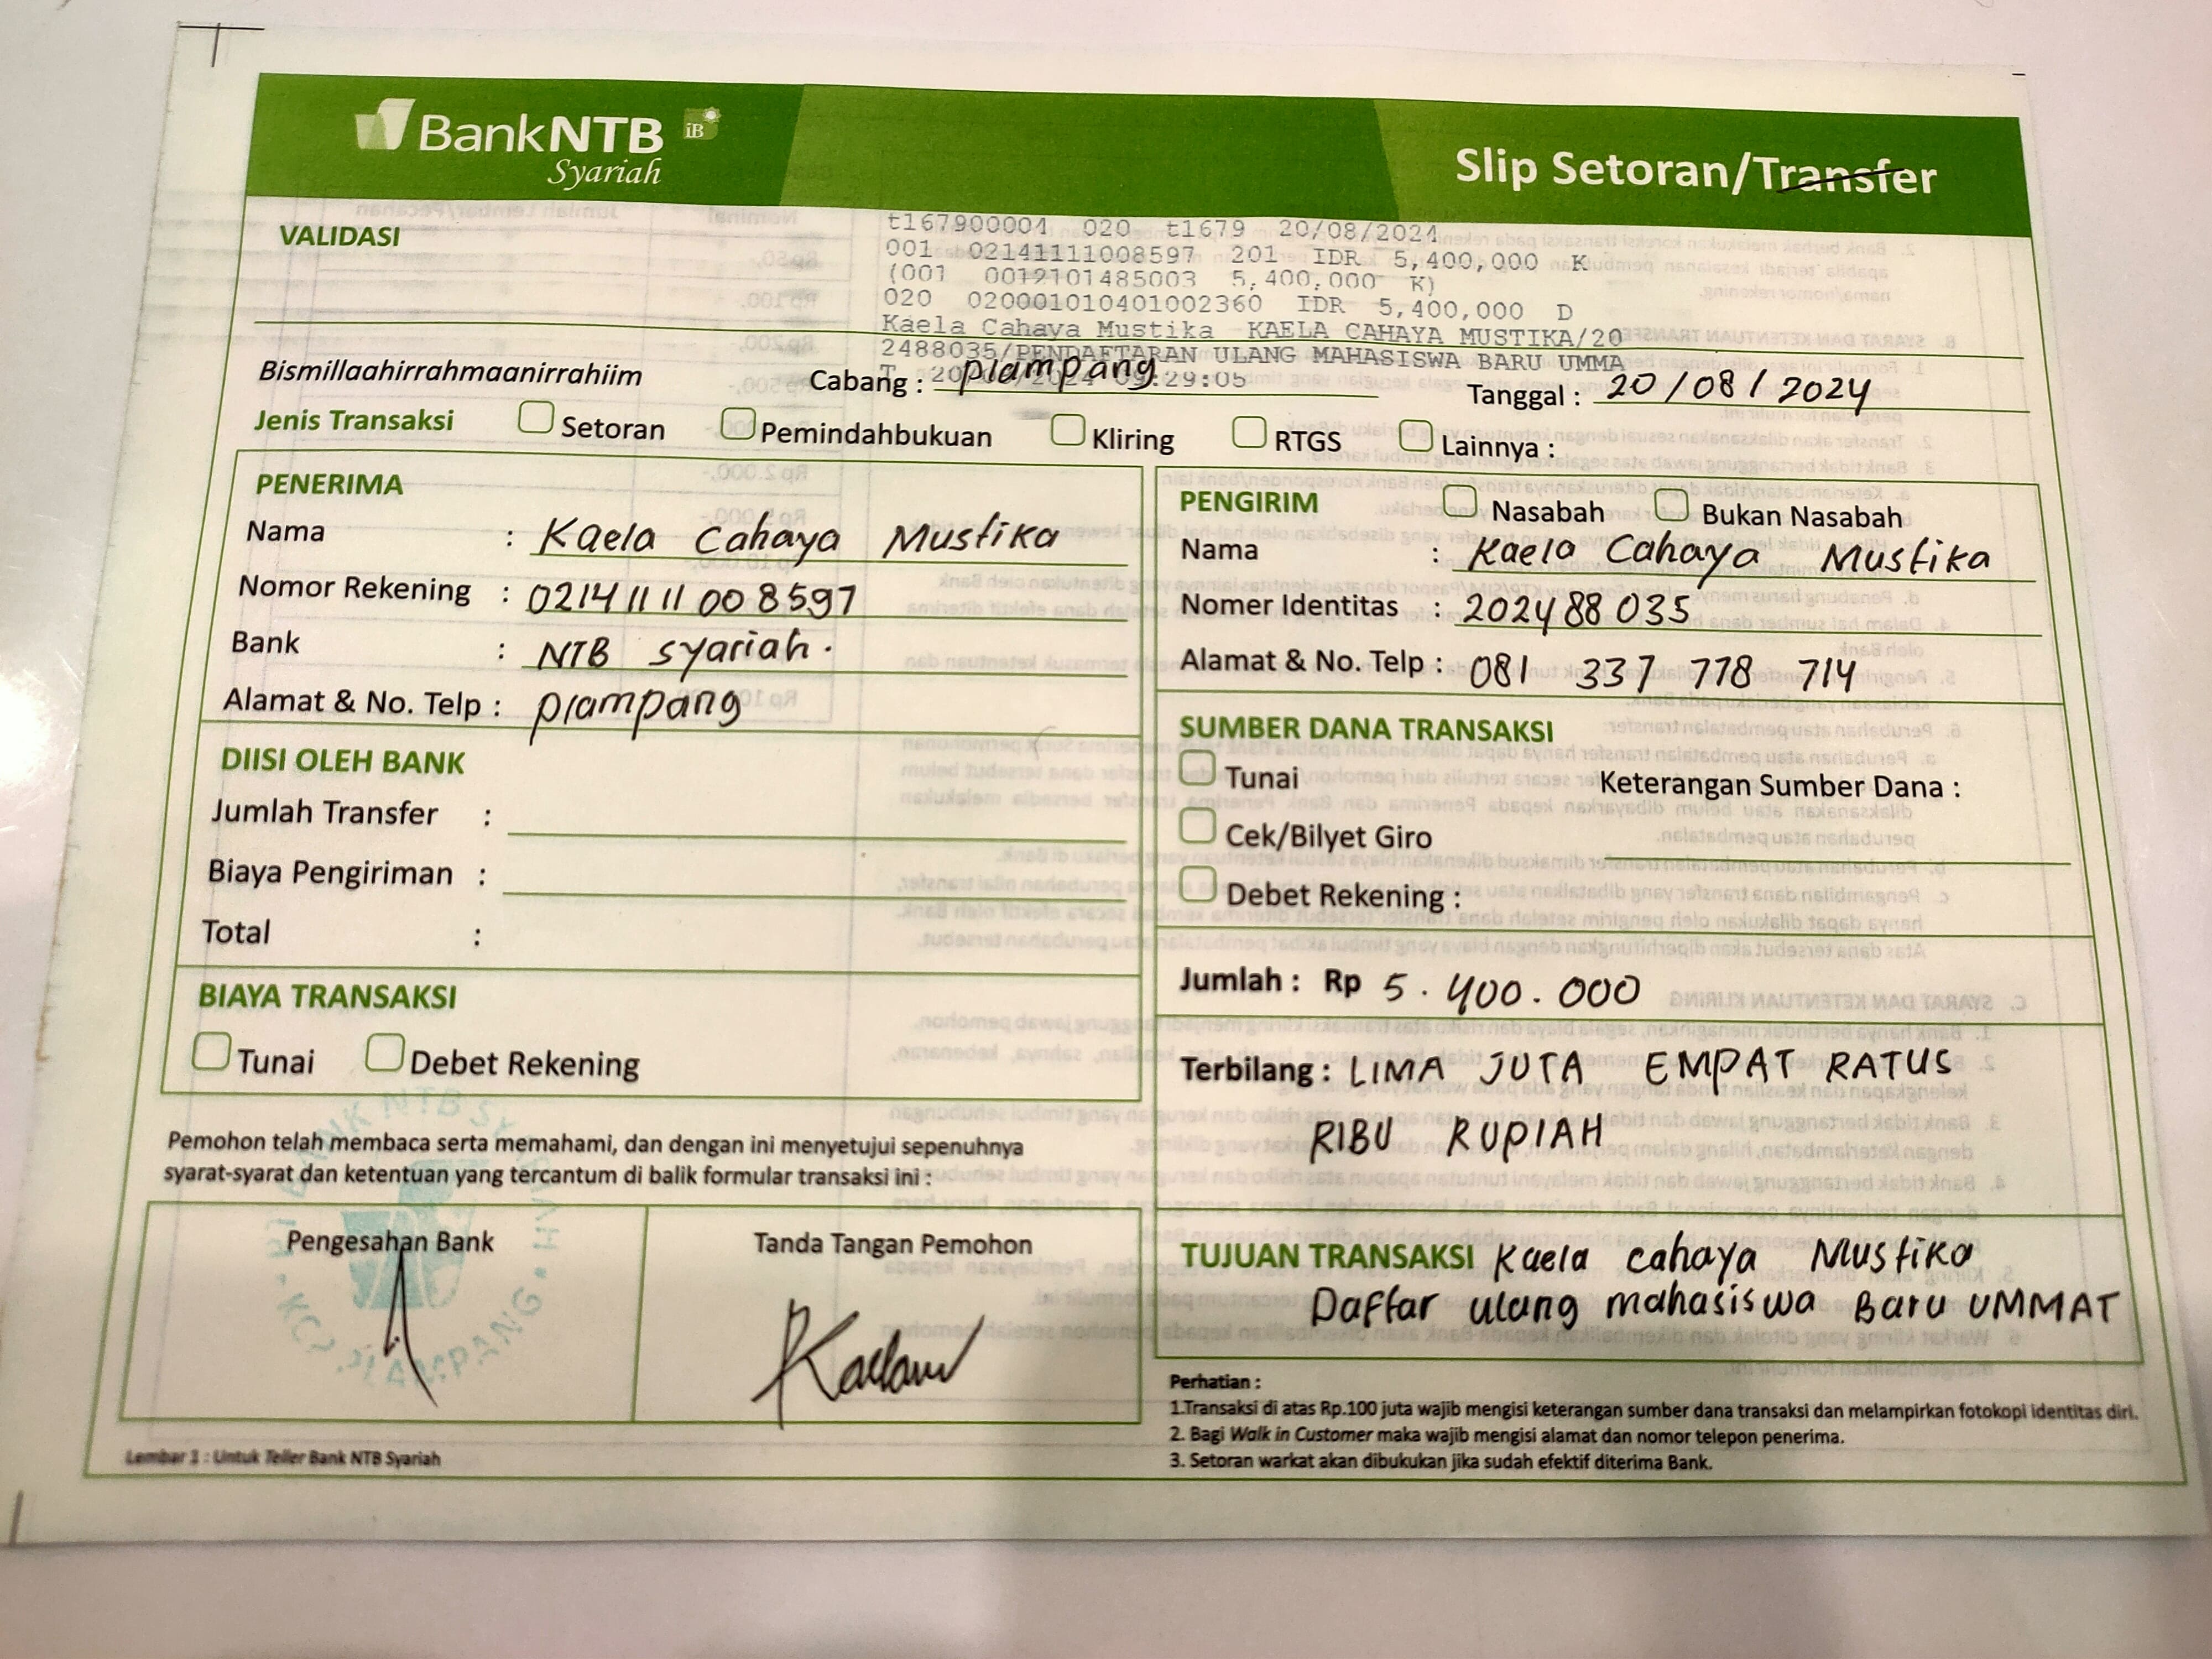 BankNTB iB
Syariah
Slip Setoran/Transfer
VALIDASI
t167900004 020 t1679 20/08/2024
001 02141111008597 201 IDR 5,400,000 K
(001 0012101485003 5,400,000 K)
020 020001010401002360 IDR 5,400,000 D
Kaela Cahaya Mustika KAELA CAHAYA MUSTIKA/20
2488035/PENDAFTARAN ULANG MAHASISWA BARU UMMA
T 20/08/2024 09:29:05
Bismillaahirrahmaanirrahiim Cabang : plampang Tanggal : 20/08/2024
Jenis Transaksi Setoran Pemindahbukuan Kliring RTGS Lainnya :
PENERIMA
Nama : Kaela Cahaya Mustika
Nomor Rekening : 0214 11 11 00 8597
Bank : NTB syariah.
Alamat & No. Telp : plampang
DIISI OLEH BANK
Jumlah Transfer :
Biaya Pengiriman :
Total :
BIAYA TRANSAKSI
Tunai Debet Rekening
Pemohon telah membaca serta memahami, dan dengan ini menyetujui sepenuhnya
syarat-syarat dan ketentuan yang tercantum di balik formular transaksi ini :
Pengesahan Bank Tanda Tangan Pemohon
BANK NTB SY
KCP PLAMPANG
Lembar 1 : Untuk Teller Bank NTB Syariah
PENGIRIM Nasabah Bukan Nasabah
Nama : Kaela Cahaya Mustika
Nomer Identitas : 202488035
Alamat & No. Telp : 081 337 778 714
SUMBER DANA TRANSAKSI
Tunai Keterangan Sumber Dana :
Cek/Bilyet Giro
Debet Rekening :
Jumlah : Rp 5.400.000
Terbilang : LIMA JUTA EMPAT RATUS
RIBU RUPIAH
TUJUAN TRANSAKSI Kaela cahaya Mustika
Daftar ulang mahasiswa Baru UMMAT
Perhatian :
1.Transaksi di atas Rp.100 juta wajib mengisi keterangan sumber dana transaksi dan melampirkan fotokopi identitas diri.
2. Bagi Walk in Customer maka wajib mengisi alamat dan nomor telepon penerima.
3. Setoran warkat akan dibukukan jika sudah efektif diterima Bank.